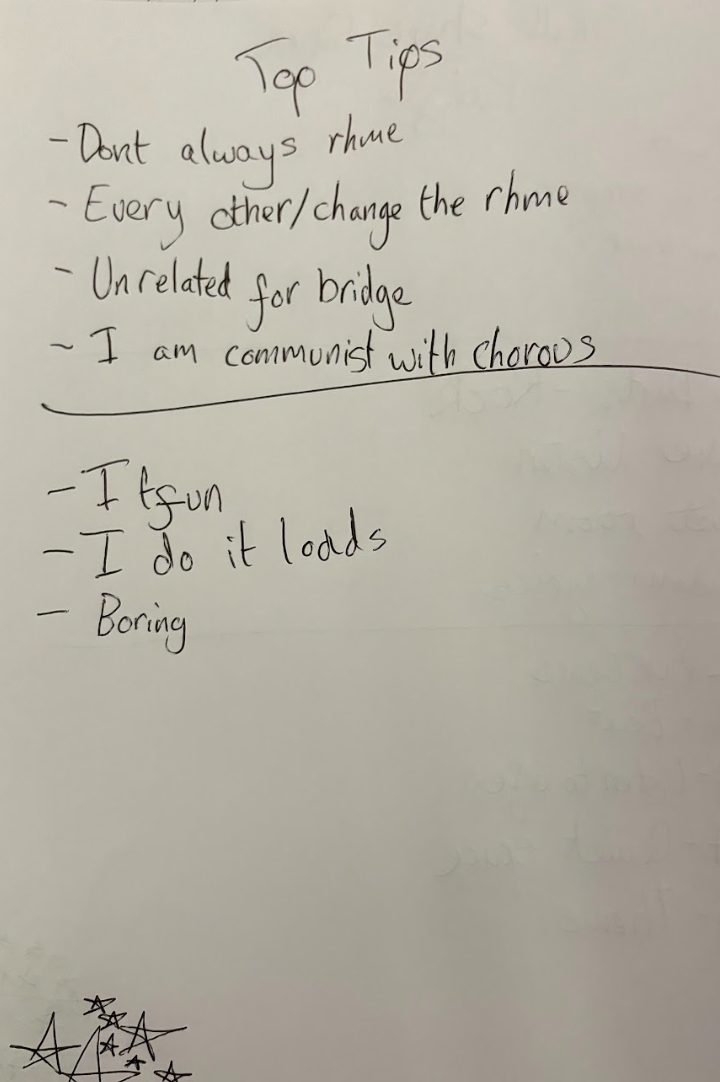 Top Tips
- Dont always rhme
- Every other/change the rhme
- Unrelated for bridge
- I am communist with chorous
- Itsfun
- I do it loads
- Boring